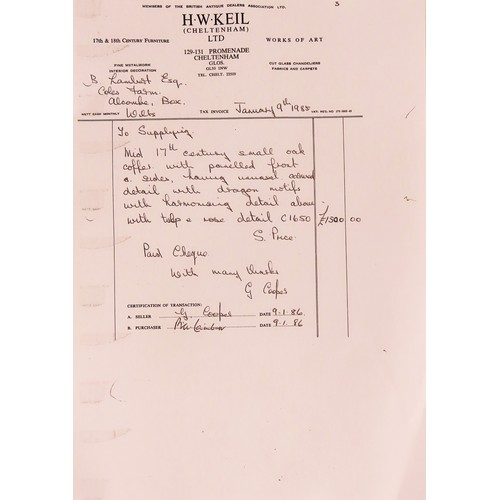 MEMBERS OF THE BRITISH ANTIQUE DEALERS ASSOCIATION LTD.
H·W·KEIL
(CHELTENHAM)
LTD
17th & 18th CENTURY FURNITURE
WORKS OF ART
129-131 PROMENADE
CHELTENHAM
GLOS.
GL50 1NW
TEL. CHELT. 22509
FINE METALWORK
INTERIOR DECORATION
CUT GLASS CHANDELIERS
FABRICS AND CARPETS
B. Lambert Esq.,
Coles Farm,
Alcombe, Box,
Wilts
NETT CASH MONTHLY
TAX INVOICE
January 9th 1988
To Supplying.
Mid 17th century small oak
coffer with panelled front
& sides, having unusual carved
detail with dragon motifs
with harmonising detail above
with tulip & rose detail C1650 £1500 00
S. Price
Paid Cheque
With many thanks
G Cooper
CERTIFICATION OF TRANSACTION:
A. SELLER G. Cooper DATE 9-1-86.
B. PURCHASER DATE 9.1.86